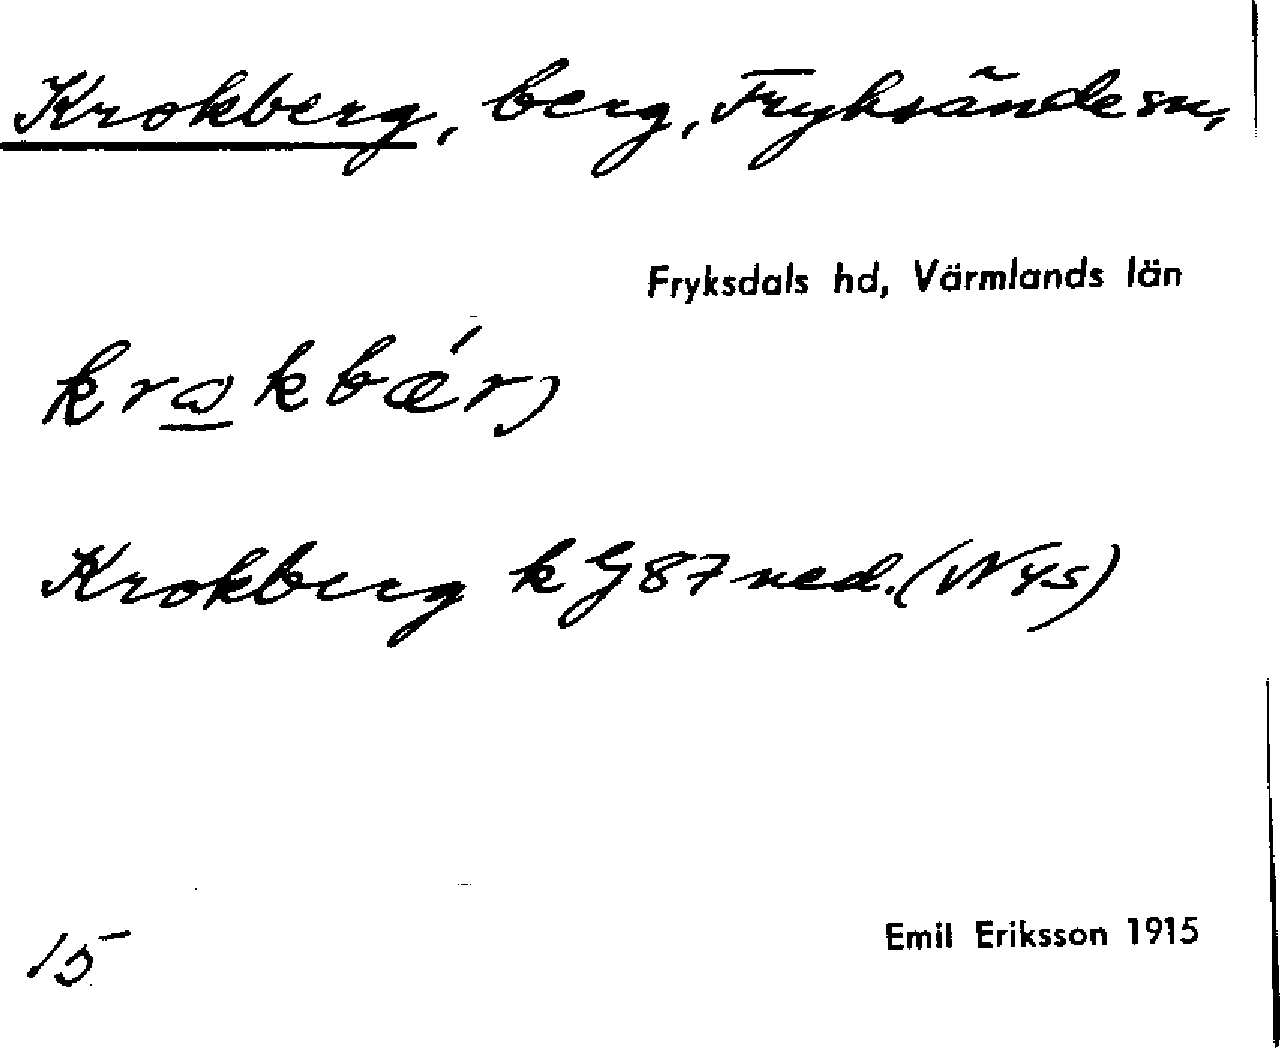 Krokberg, berg, Fryksände sn,
Fryksdals hd, Värmlands län
Krokberg k G 87 ned. (NYs)
15
Emil Eriksson 1915